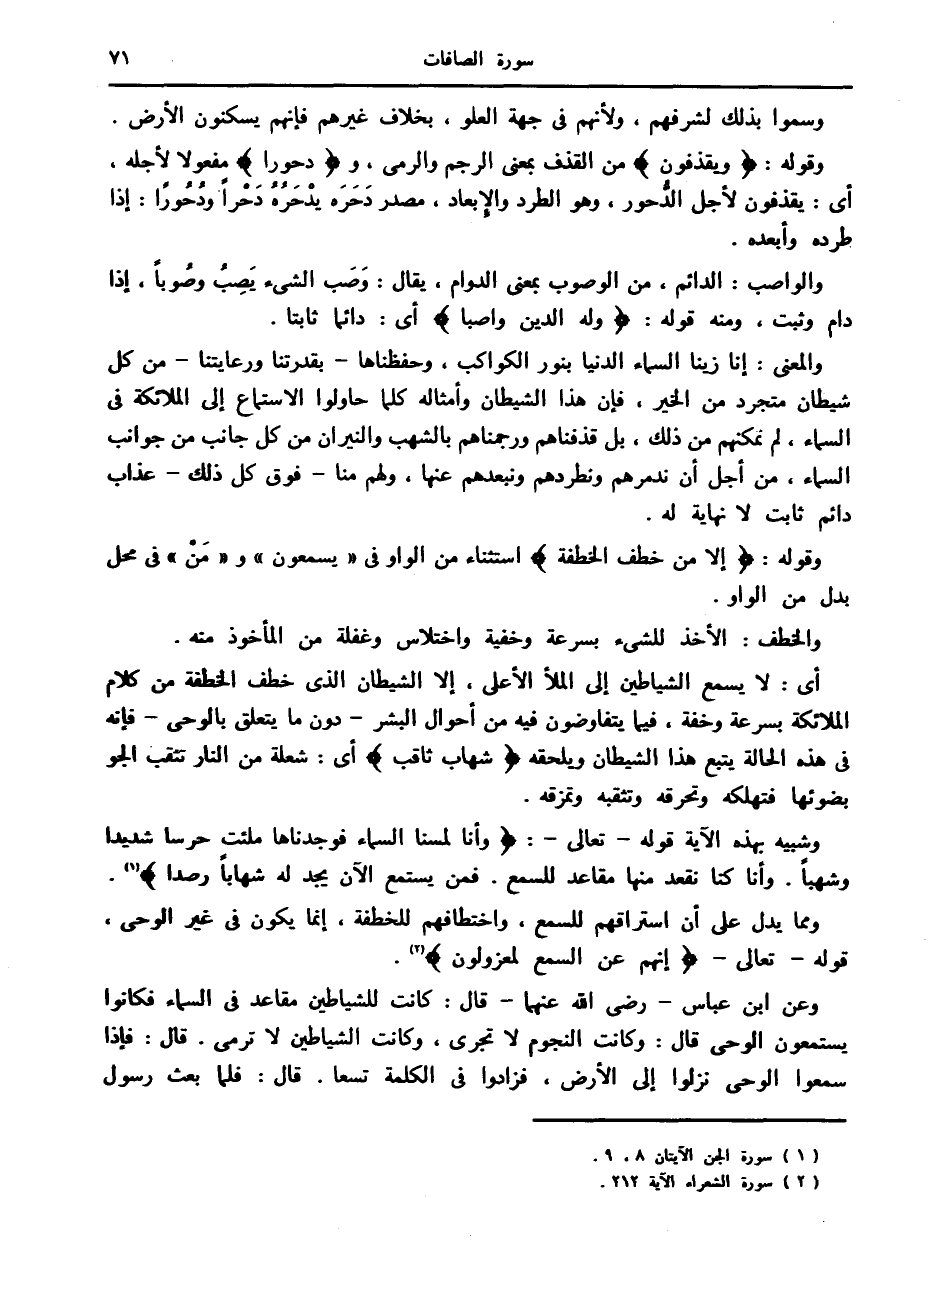 سورة الصافات ٧١
وسموا بذلك لشرفهم ، ولأنهم فى جهة العلو ، بخلاف غيرهم فإنهم يسكنون الأرض .
وقوله : ﴿ ويقذفون ﴾ من القذف بمعنى الرجم والرمى ، و ﴿ دحورا ﴾ مفعولا لأجله ،
أى : يقذفون لأجل الدُّحور ، وهو الطرد والإبعاد ، مصدر دَحَرَه يدْحَرُهُ دَحْراً ودُحُورًا : إذا
طرده وأبعده .
والواصب : الدائم ، من الوصوب بمعنى الدوام ، يقال : وَصَب الشىء يَصِبُ وصُوباً ، إذا
دام وثبت ، ومنه قوله : ﴿ وله الدين واصبا ﴾ أى : دائما ثابتا .
والمعنى : إنا زينا السماء الدنيا بنور الكواكب ، وحفظناها – بقدرتنا ورعايتنا – من كل
شيطان متجرد من الخير ، فإن هذا الشيطان وأمثاله كلما حاولوا الاستماع إلى الملائكة فى
السماء ، لم نمكنهم من ذلك ، بل قذفناهم ورجمناهم بالشهب والنيران من كل جانب من جوانب
السماء ، من أجل أن ندمرهم ونطردهم ونبعدهم عنها ، ولهم منا – فوق كل ذلك – عذاب
دائم ثابت لا نهاية له .
وقوله : ﴿ إلا من خطف الخطفة ﴾ استثناء من الواو فى « يسمعون » و « مَنْ » فى محل
بدل من الواو .
والخطف : الأخذ للشىء بسرعة وخفية واختلاس وغفلة من المأخوذ منه .
أى : لا يسمع الشياطين إلى الملأ الأعلى ، إلا الشيطان الذى خطف الخطفة من كلام
الملائكة بسرعة وخفة ، فيما يتفاوضون فيه من أحوال البشر – دون ما يتعلق بالوحى – فإنه
فى هذه الحالة يتبع هذا الشيطان ويلحقه ﴿ شهاب ثاقب ﴾ أى : شعلة من النار تثقب الجو
بضوئها فتهلكه وتحرقه وتثقبه وتمزقه .
وشبيه بهذه الآية قوله – تعالى – : ﴿ وأنا لمسنا السماء فوجدناها ملئت حرسا شديدا
وشهباً . وأنا كنا نقعد منها مقاعد للسمع . فمن يستمع الآن يجد له شهاباً رصدا ﴾(١) .
ومما يدل على أن استراقهم للسمع ، واختطافهم للخطفة ، إنما يكون فى غير الوحى ،
قوله – تعالى – ﴿ إنهم عن السمع لمعزولون ﴾(٢) .
وعن ابن عباس – رضى الله عنهما – قال : كانت للشياطين مقاعد فى السماء فكانوا
يستمعون الوحى قال : وكانت النجوم لا تجرى ، وكانت الشياطين لا ترمى . قال : فإذا
سمعوا الوحى نزلوا إلى الأرض ، فزادوا فى الكلمة تسعا . قال : فلما بعث رسول
( ١ ) سورة الجن الآيتان ٨ ، ٩ .
( ٢ ) سورة الشعراء الآية ٢١٢ .